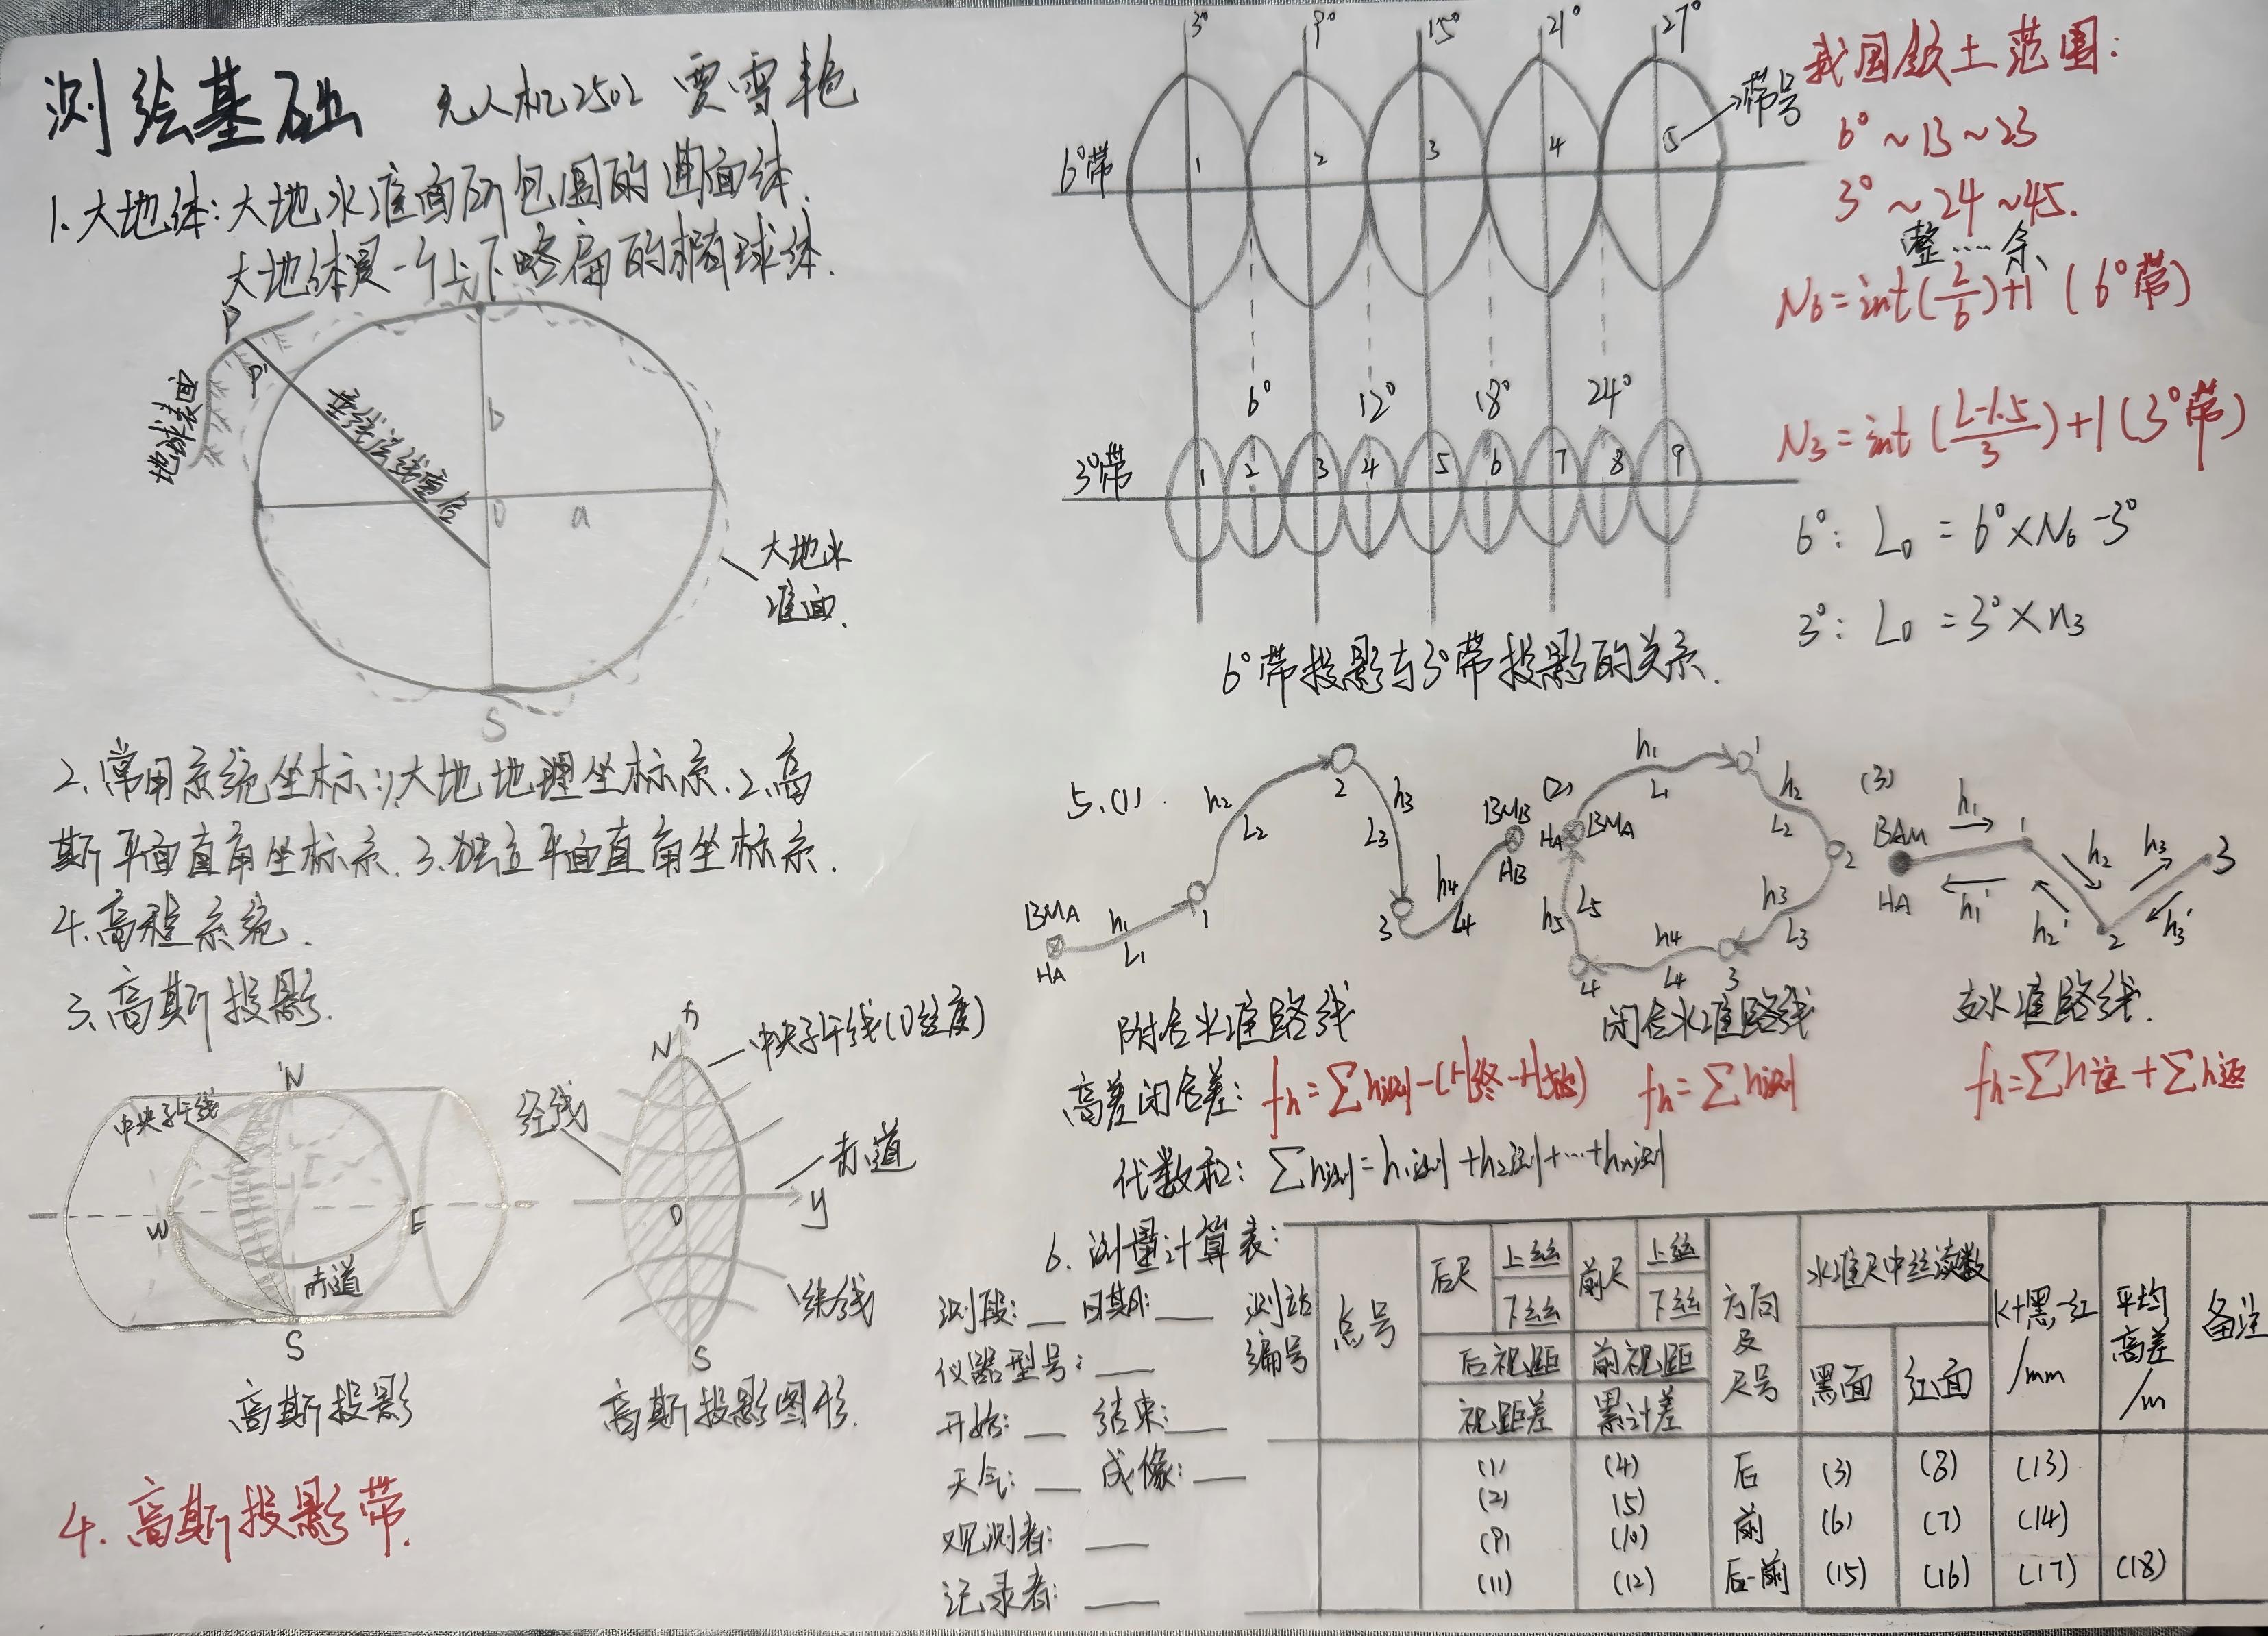 测绘基础 无人机2502 贾雪艳
1.大地体:大地水准面所包围的曲面体.
大地体是一个上下略扁的椭球体.
N
P
P'
地球表面
垂线法线重合
b
O
a
大地水
准面.
S
2.常用系统坐标:1.大地地理坐标系.2.高
斯平面直角坐标系.3.独立平面直角坐标系.
4.高程系统.
3.高斯投影.
N
中央子午线
W
E
赤道
S
高斯投影
x
N
中央子午线(0经度)
经线
赤道
y
O
纬线
S
高斯投影图形.
4.高斯投影带.
3° 9° 15° 21° 27°
带号
6°带
1 2 3 4 5
6° 12° 18° 24°
3°带
1 2 3 4 5 6 7 8 9
6°带投影与3°带投影的关系.
我国领土范围:
6°~13~23
3°~24~45.
整……余
N6=int(L/6)+1 (6°带)
N3=int(L-1.5/3)+1(3°带)
6°: L0=6°×N6-3°
3°: L0=3°×n3
5.(1).
BMA
HA
h1
L1
1
h2
L2
2
h3
L3
3
h4
L4
BMB
HB
附合水准路线
(2)
HA BMA
h1
L1
1
h2
L2
2
h3
L3
3
h4
L4
4
h5 L5
闭合水准路线
(3)
BAM
HA
h1
h1'
1
h2
h2'
2
h3
h3'
3
支水准路线.
高差闭合差: fh=∑h测-(H终-H始) fh=∑h测 fh=∑h往+∑h返
代数和: ∑h测=h1测+h2测+…+hn测
6.测量计算表:
测段:__ 日期:___
仪器型号:___
开始:__ 结束:___
天气:__ 成像:___
观测者:___
记录者:___
测站编号 点号 后尺 上丝 下丝 前尺 上丝 下丝 方向及尺号 水准尺中丝读数 K+黑-红/mm 平均高差/m 备注
后视距 前视距 黑面 红面
视距差 累计差
(1) (4) 后 (3) (8) (13)
(2) (5)
(9) (10) 前 (6) (7) (14)
(11) (12) 后-前 (15) (16) (17) (18)